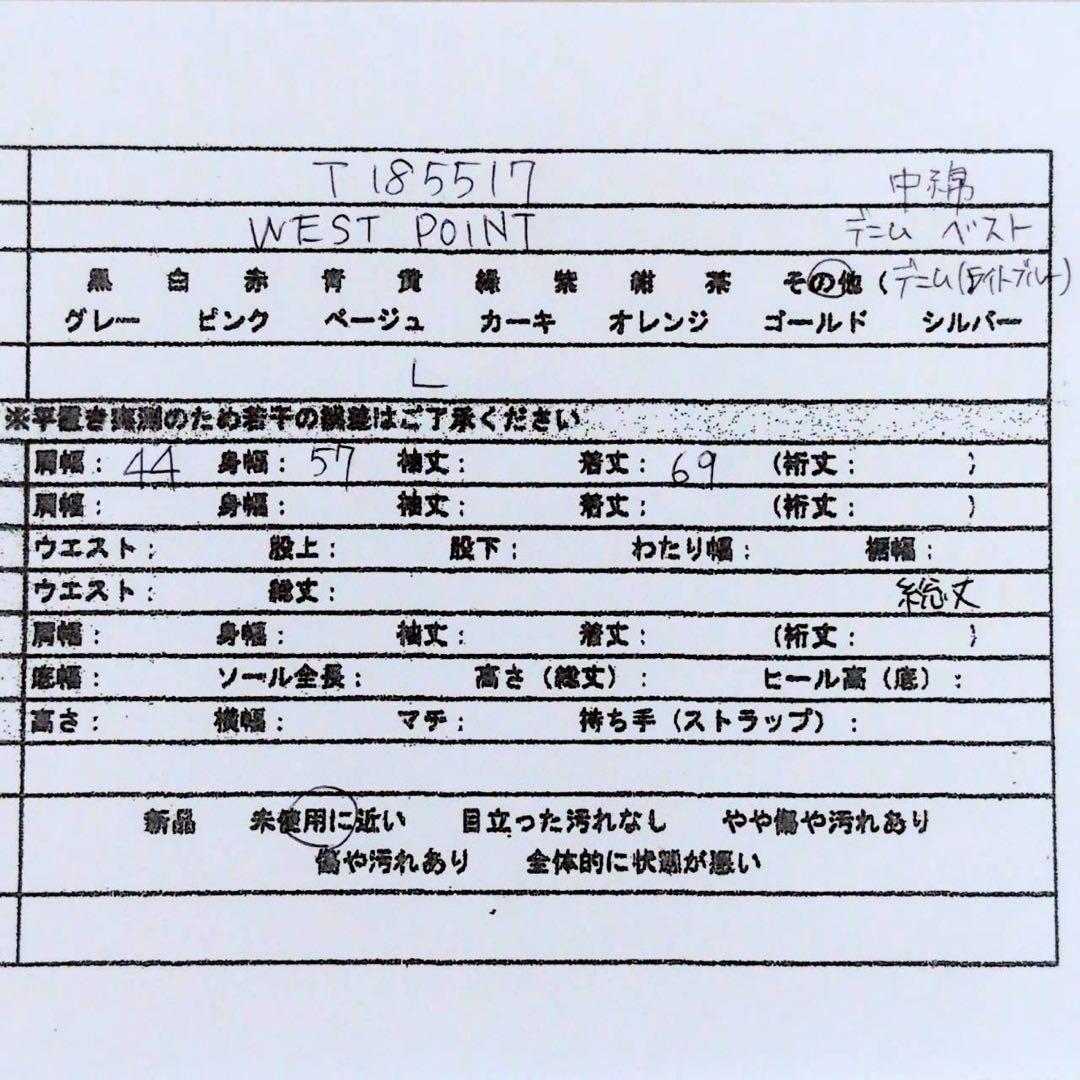 T185517 中綿
WEST POINT デニム ベスト
黒 白 赤 青 黄 緑 紫 紺 茶 その他 (デニム(ライトブルー)
グレー ピンク ベージュ カーキ オレンジ ゴールド シルバー
L
※平置き実測のため若干の誤差はご了承ください
肩幅: 44 身幅: 57 袖丈: 着丈: 69 (裄丈: )
肩幅: 身幅: 袖丈: 着丈: (裄丈: )
ウエスト: 股上: 股下: わたり幅: 裾幅:
ウエスト: 総丈: 総丈
肩幅: 身幅: 袖丈: 着丈: (裄丈: )
底幅: ソール全長: 高さ(総丈): ヒール高(底):
高さ: 横幅: マチ: 持ち手(ストラップ):
新品 未使用に近い 目立った汚れなし やや傷や汚れあり
傷や汚れあり 全体的に状態が悪い